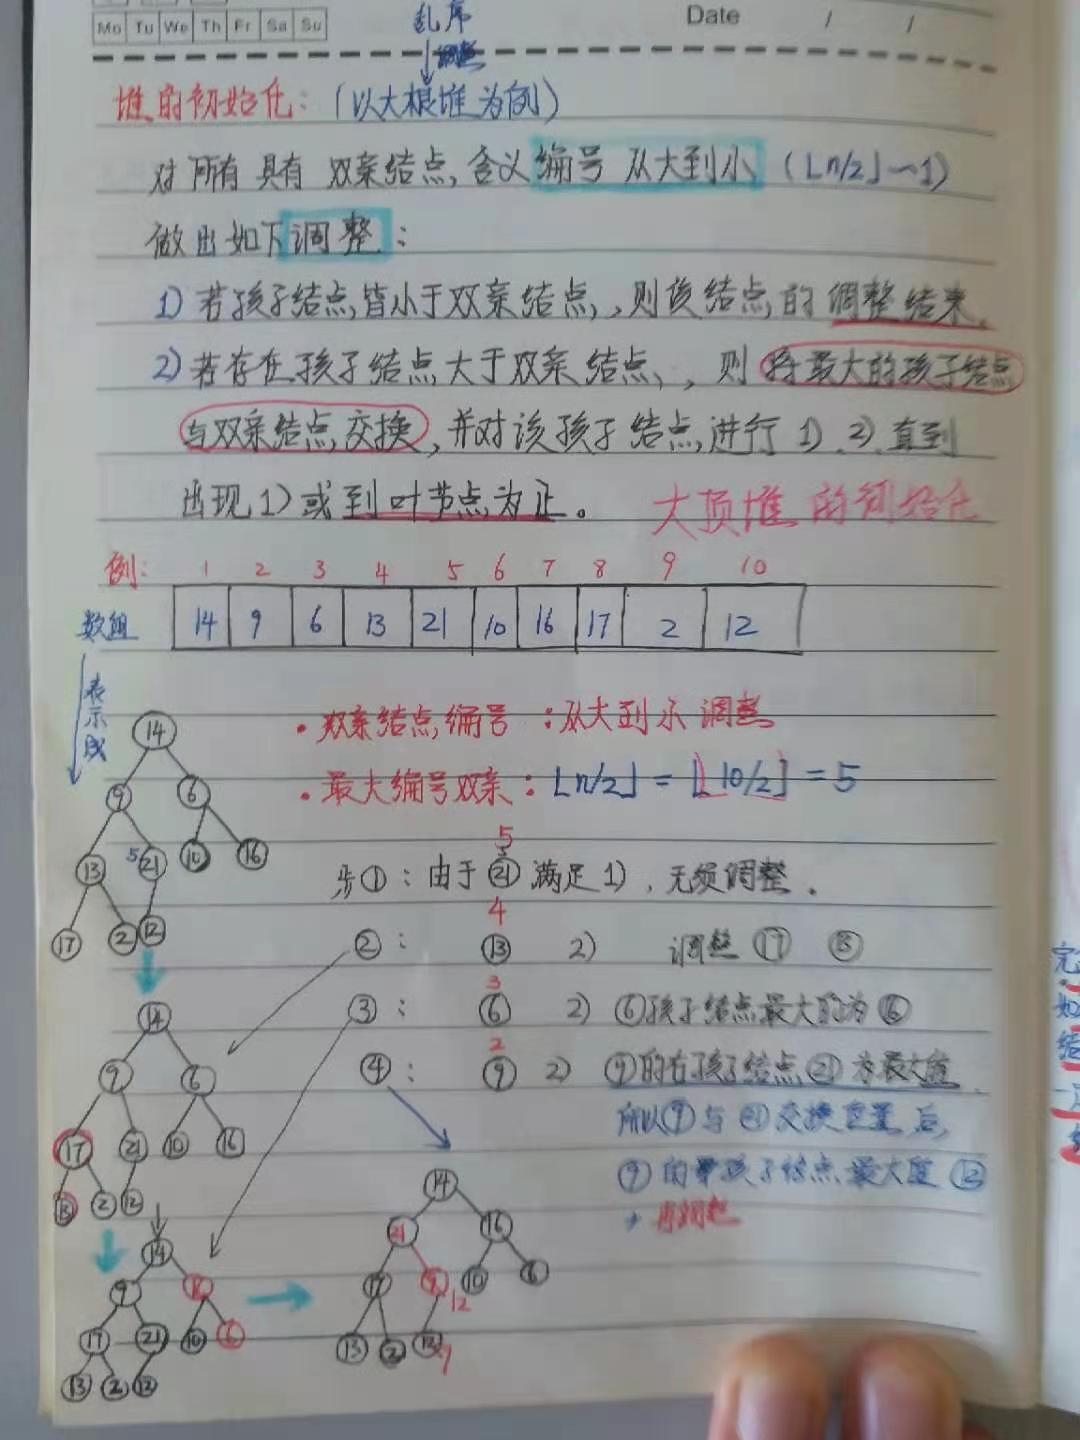 Mo Tu We Th Fr Sa Su
Date / /
乱序
调整
堆的初始化：（以大根堆为例）
对所有具有双亲结点，含义编号从大到小（⌊n/2⌋~1）
做出如下调整：
1）若孩子结点皆小于双亲结点，，则该结点的调整结束。
2）若存在孩子结点大于双亲结点，，则将最大的孩子结点
与双亲结点交换，并对该孩子结点进行1）、2）直到
出现1）或到叶节点为止。
大顶堆的初始化
例：1 2 3 4 5 6 7 8 9 10
数组 14 9 6 13 21 10 16 17 2 12
表示成
·双亲结点编号：从大到小调整
·最大编号双亲：⌊n/2⌋ = ⌊10/2⌋ = 5
14
9 6
13 5 21 10 16
17 2 12
5
步①：由于㉑满足1），无须调整。
4
②：⑬ 2） 调整⑰ ⑬
3
③：⑥ 2） ⑥孩子结点最大的为⑯
2
④：⑨ 2） ⑨的右孩子结点㉑为最大值
所以⑨与㉑交换位置后，
⑨的孩子结点最大值⑫
再调整
14
9 6
17 21 10 16
13 2 12
14
9
17 21 10 6
13 2 12
14
21 16
17 9 10 6
12
13 2 12
9